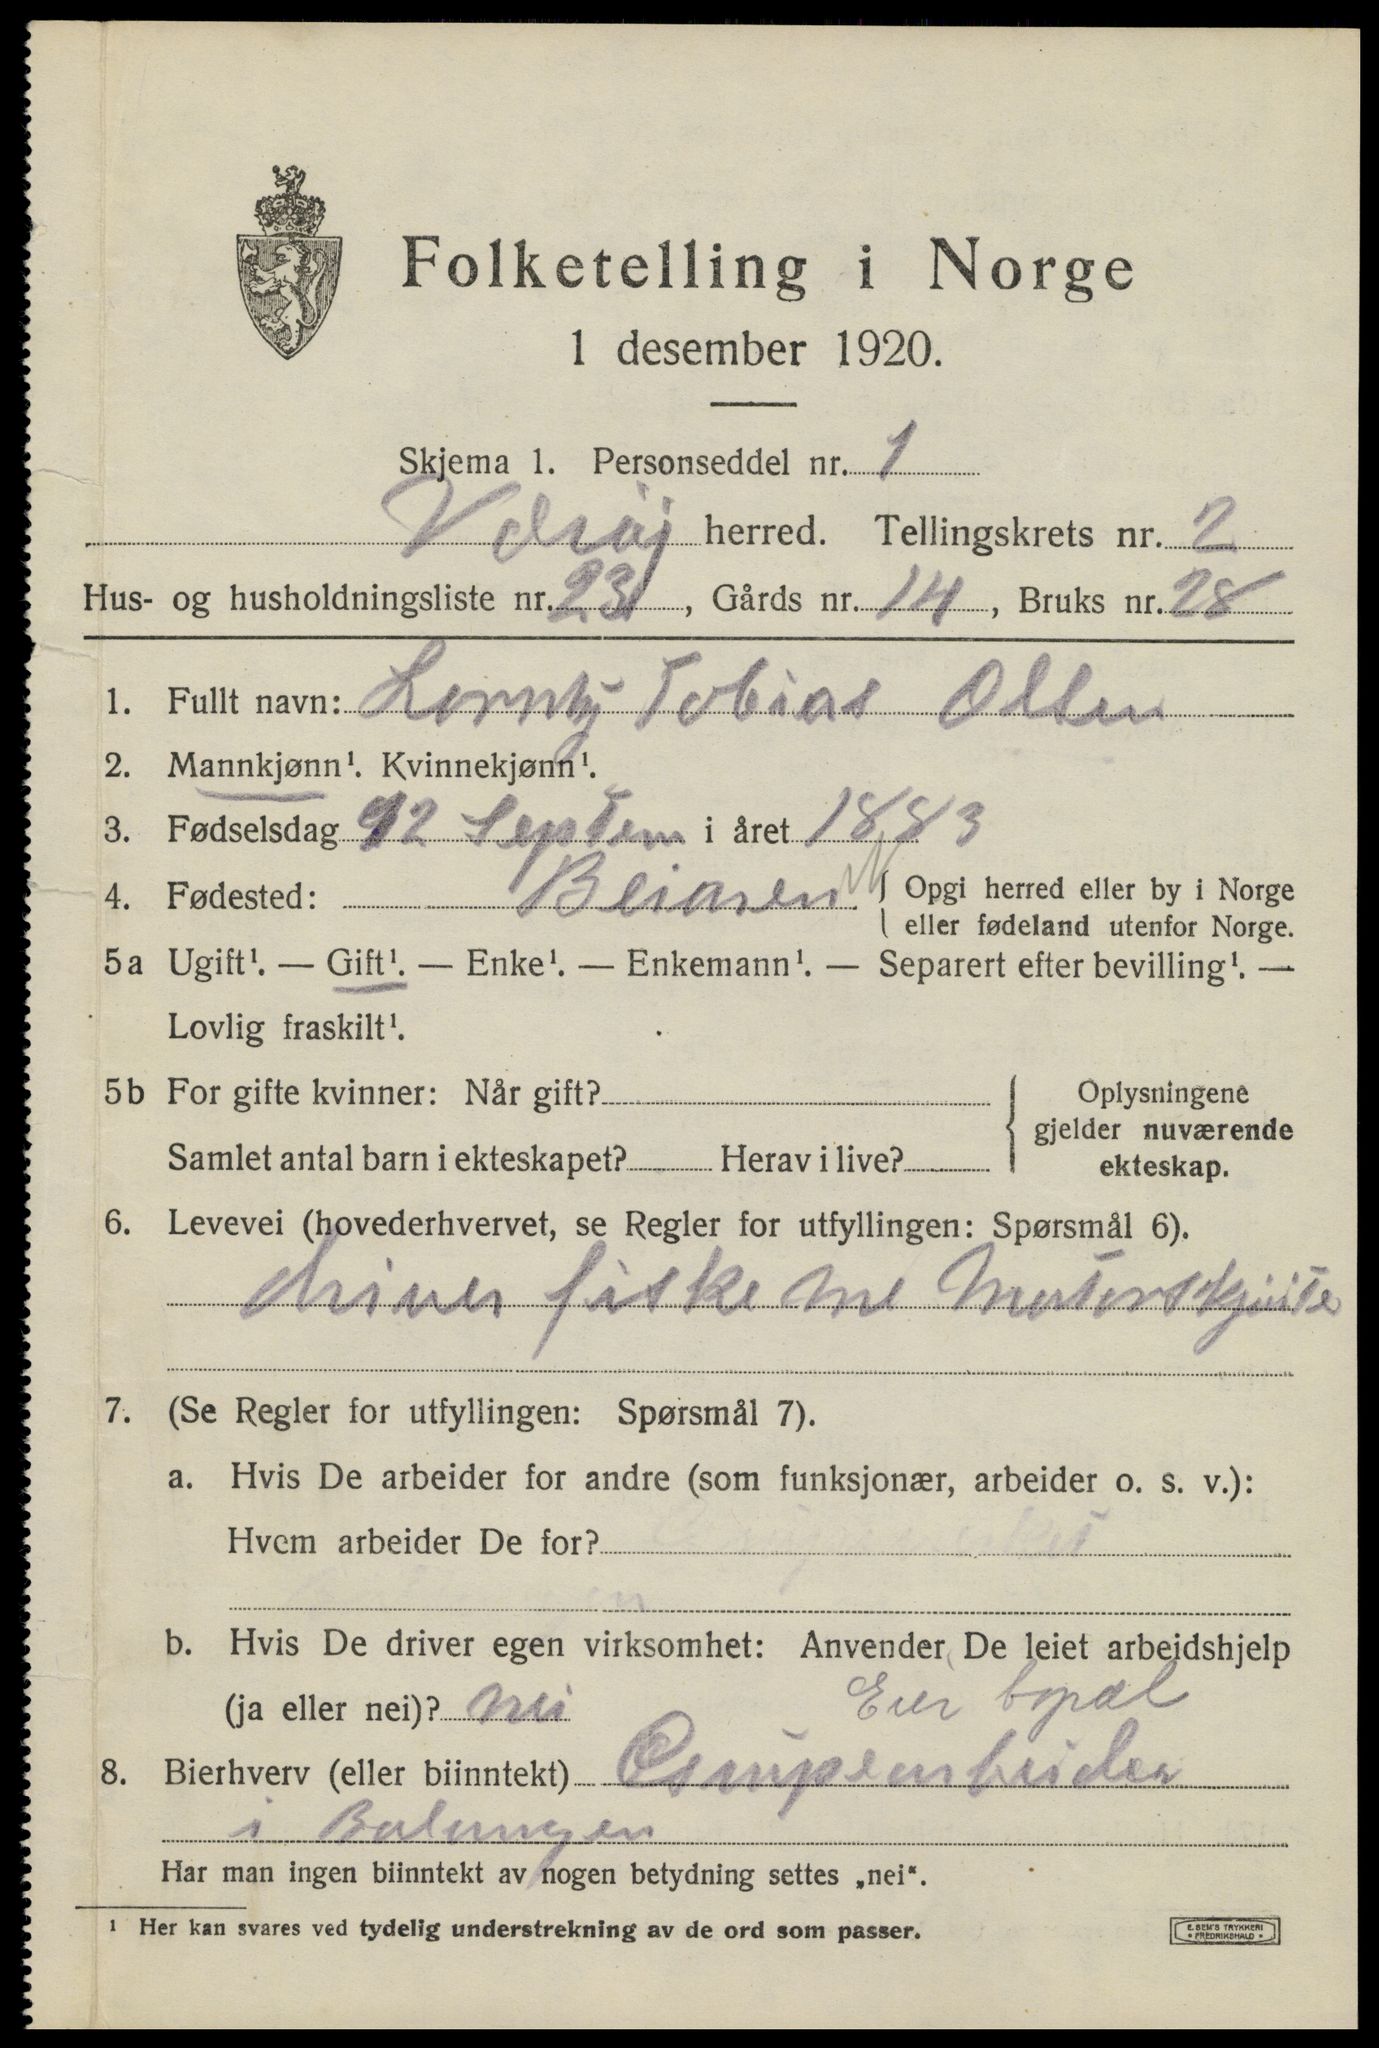 Folketelling i Norge
1 desember 1920.
Skjema 1. Personseddel nr. 1
Værøj herred. Tellingskrets nr. 2
Hus- og husholdningsliste nr. 23, Gårds nr. 14, Bruks nr. 28
1. Fullt navn: Lorntz Tobias Olsen
2. Mannkjønn¹. Kvinnekjønn¹.
3. Fødselsdag 12 Septem i året 1883
4. Fødested: Beiaren { Opgi herred eller by i Norge
eller fødeland utenfor Norge.
5a Ugift¹. — Gift¹. — Enke¹. — Enkemann¹. — Separert efter bevilling¹. —
Lovlig fraskilt¹.
5b For gifte kvinner: Når gift?
Samlet antal barn i ekteskapet? Herav i live?
Oplysningene
gjelder nuværende
ekteskap.
6. Levevei (hovederhvervet, se Regler for utfyllingen: Spørsmål 6).
driver fiske me Motorskjøite
7. (Se Regler for utfyllingen: Spørsmål 7).
a. Hvis De arbeider for andre (som funksjonær, arbeider o. s. v.):
Hvem arbeider De for?
b. Hvis De driver egen virksomhet: Anvender De leiet arbeidshjelp
(ja eller nei)? nei Eier bopæl
8. Bierhverv (eller biinntekt)
i
Har man ingen biinntekt av nogen betydning settes „nei".
¹ Her kan svares ved tydelig understrekning av de ord som passer.
E. SEM'S TRYKKERI
• FREDRIKSHALD •